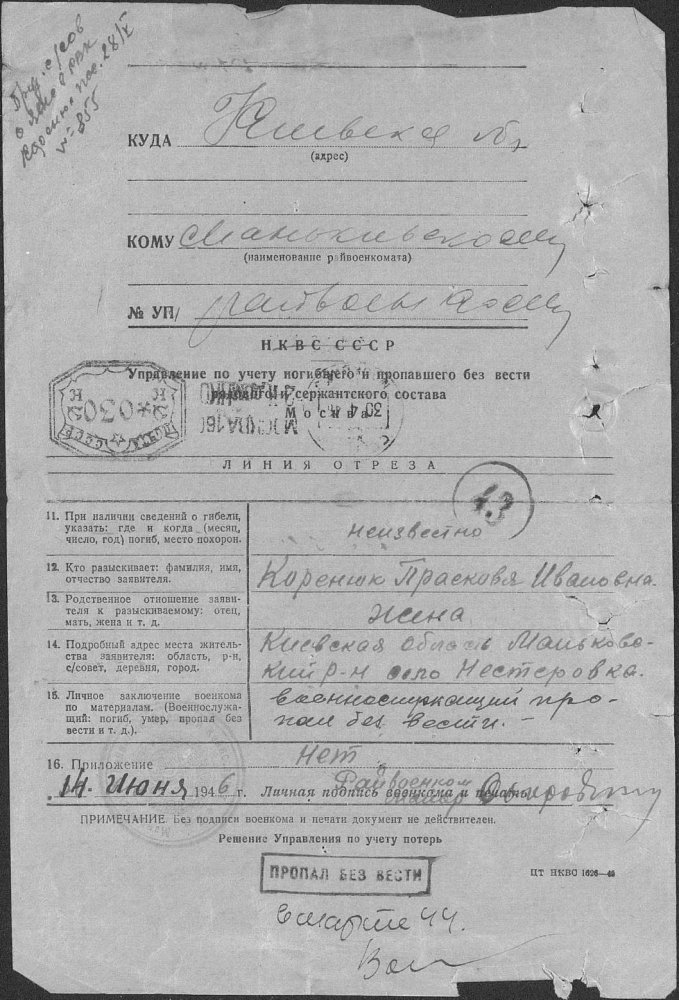 № 855
КУДА Киевская
(адрес)
КОМУ Маньковскому
(наименование райвоенкомата)
№ УП/ райвоенкому
НКВС СССР
Управление по учету погибшего и пропавшего без вести
рядового и сержантского состава
Москва
ПОЧТА СССР
*030*
МОСКВА
ЛИНИЯ ОТРЕЗА
43
11. При наличии сведений о гибели, указать: где и когда (месяц, число, год) погиб, место похорон.
неизвестно
12. Кто разыскивает: фамилия, имя, отчество заявителя.
Коренюк Прасковя Ивановна.
13. Родственное отношение заявителя к разыскиваемому: отец, мать, жена и т. д.
жена
14. Подробный адрес места жительства заявителя: область, р-н, с/совет, деревня, город.
Киевская область Маньково-
кий р-н село Нестеровка.
15. Личное заключение военкома по материалам. (Военнослужащий: погиб, умер, пропал без вести и т. д.).
военнослужащий про-
пал без вести. –
16. Приложение Нет
14. Июня 1946 г. Личная подпись военкома и печать
Райвоенком
майор
ПРИМЕЧАНИЕ Без подписи военкома и печати документ не действителен.
Решение Управления по учету потерь
ПРОПАЛ БЕЗ ВЕСТИ
ЦТ НКВС 1626—45
в марте 44.